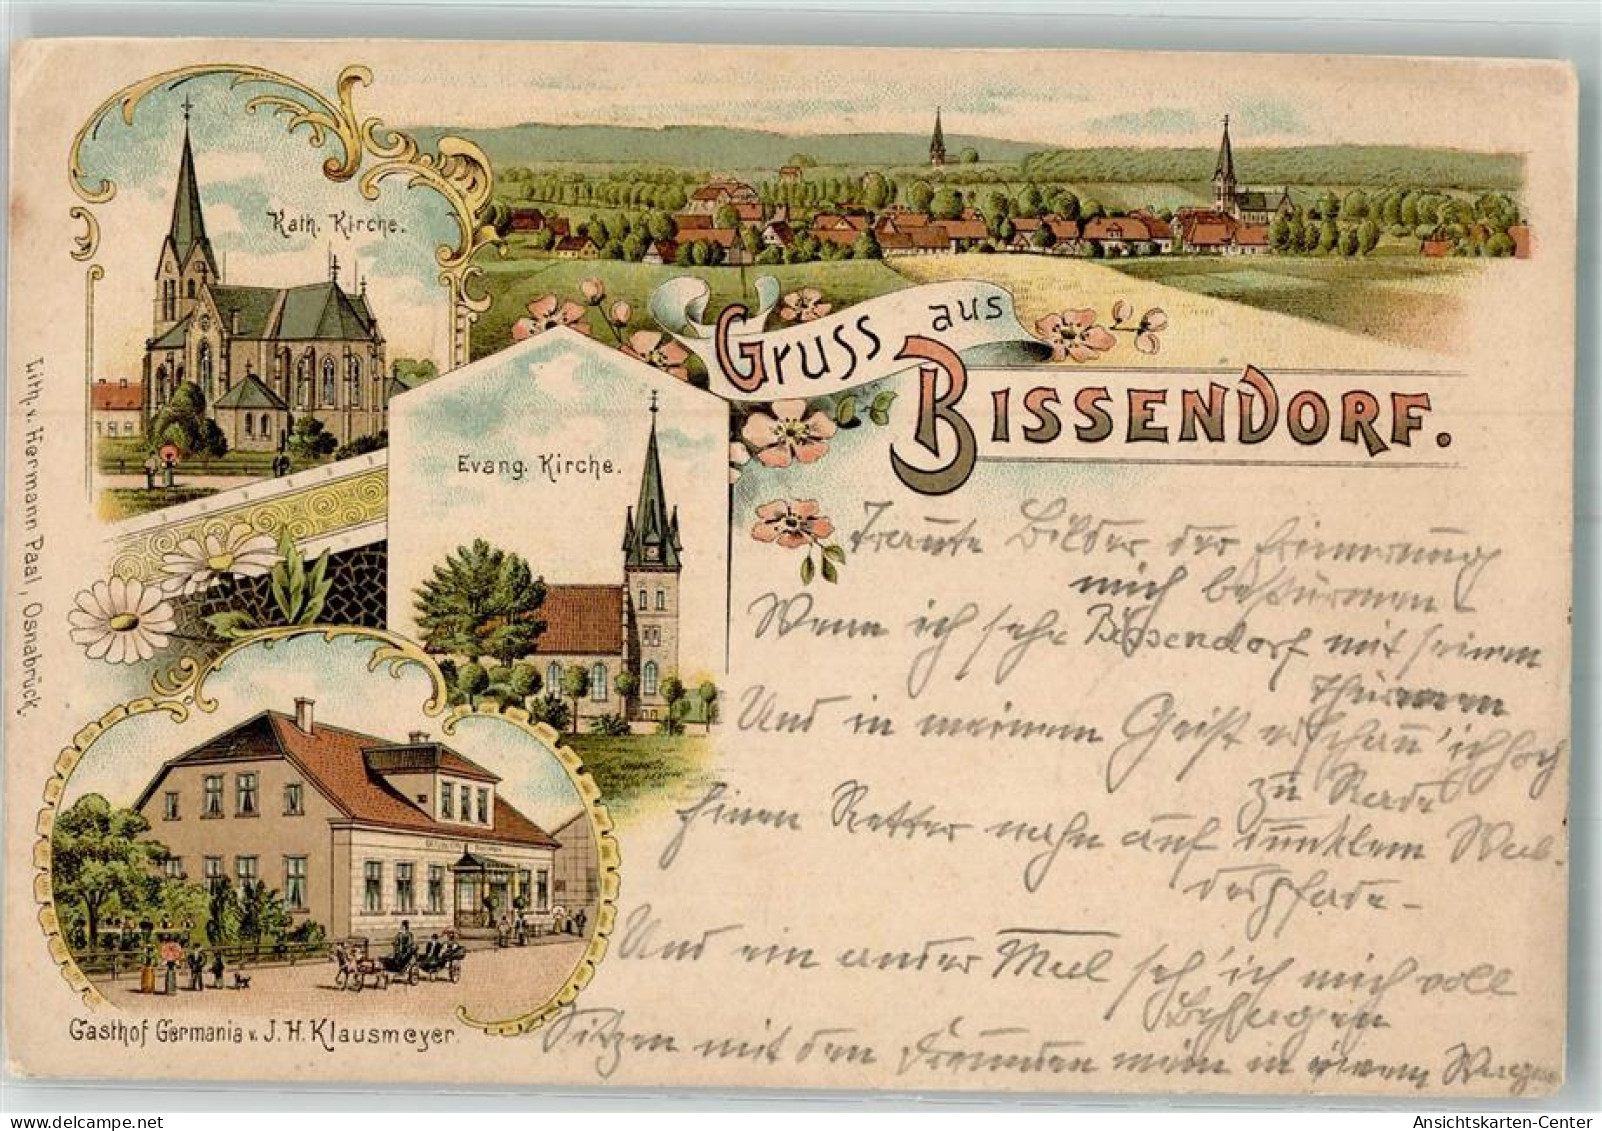 Kath. Kirche.
Gruss aus
Bissendorf.
Evang. Kirche.
Lith. v. Hermann Paal, Osnabrück.
Gasthof Germania v. J. H. Klausmeyer.
Traute Bilder der Erinnerung
mich bestürmen
Wenn ich sehe Bissendorf mit seinen
Thürmen
Und in meinem Geist erschau' ich hoch
zu Rade
Einen Retter nahn auf dunklem Wal-
despfade –
Und ein ander Mal seh' ich mich voll
Behagen
Sitzen mit den Freunden mein in Wagen
Ansichtskarten-Center